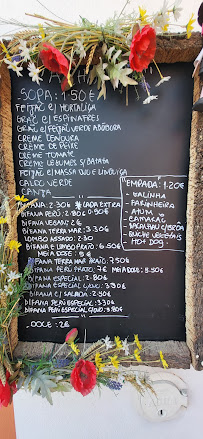 SOPA: 1.50€
FEIJAO C/ HORTALIÇA
GRÃO C/ ESPINAFRES
GRÃO C/ FEIJÃO VERDE ABÓBORA
CREME CENOURA
CREME DE PEIXE
CREME TOMATE
CREME LEGUMES S/ BATATA
FEIJÃO C/ MASSA OVO E
CALDO VERDE
CANJA
"EMPADA" 1.20€
- GALINHA
- FARINHEIRA
- ATUM
- CAMARÃO
- BACALHAU C/ BRÔA
- VEGETAIS
- HOT DOG
BIFANA: 2€ *CADA EXTRA
BIFANA PERU: 2.80€ 0.50€
BIFANA VEGAN: 2€
BIFANA TERRA MAR: 3.30€
LOMBO ASSADO: 2.80
BIFANA E LIMBO PRATO: 6.50€
MEIA DOSE: 5€
BIFANA TERRA MAR PRATO:
BIFANA PERU PRATO: 7€ MEIA DOSE: 5.50€
BIFANA ESPECIAL: 2.80€
BIFANA ESPECIAL C/ OVO: 3.30€
BIFANA C/ SALADA: 2.50€
BIFANA PERU ESPECIAL: 3.30€
BIFANA PERU ESPECIAL C/ OVO: 3.80€
- DOCE: 2€